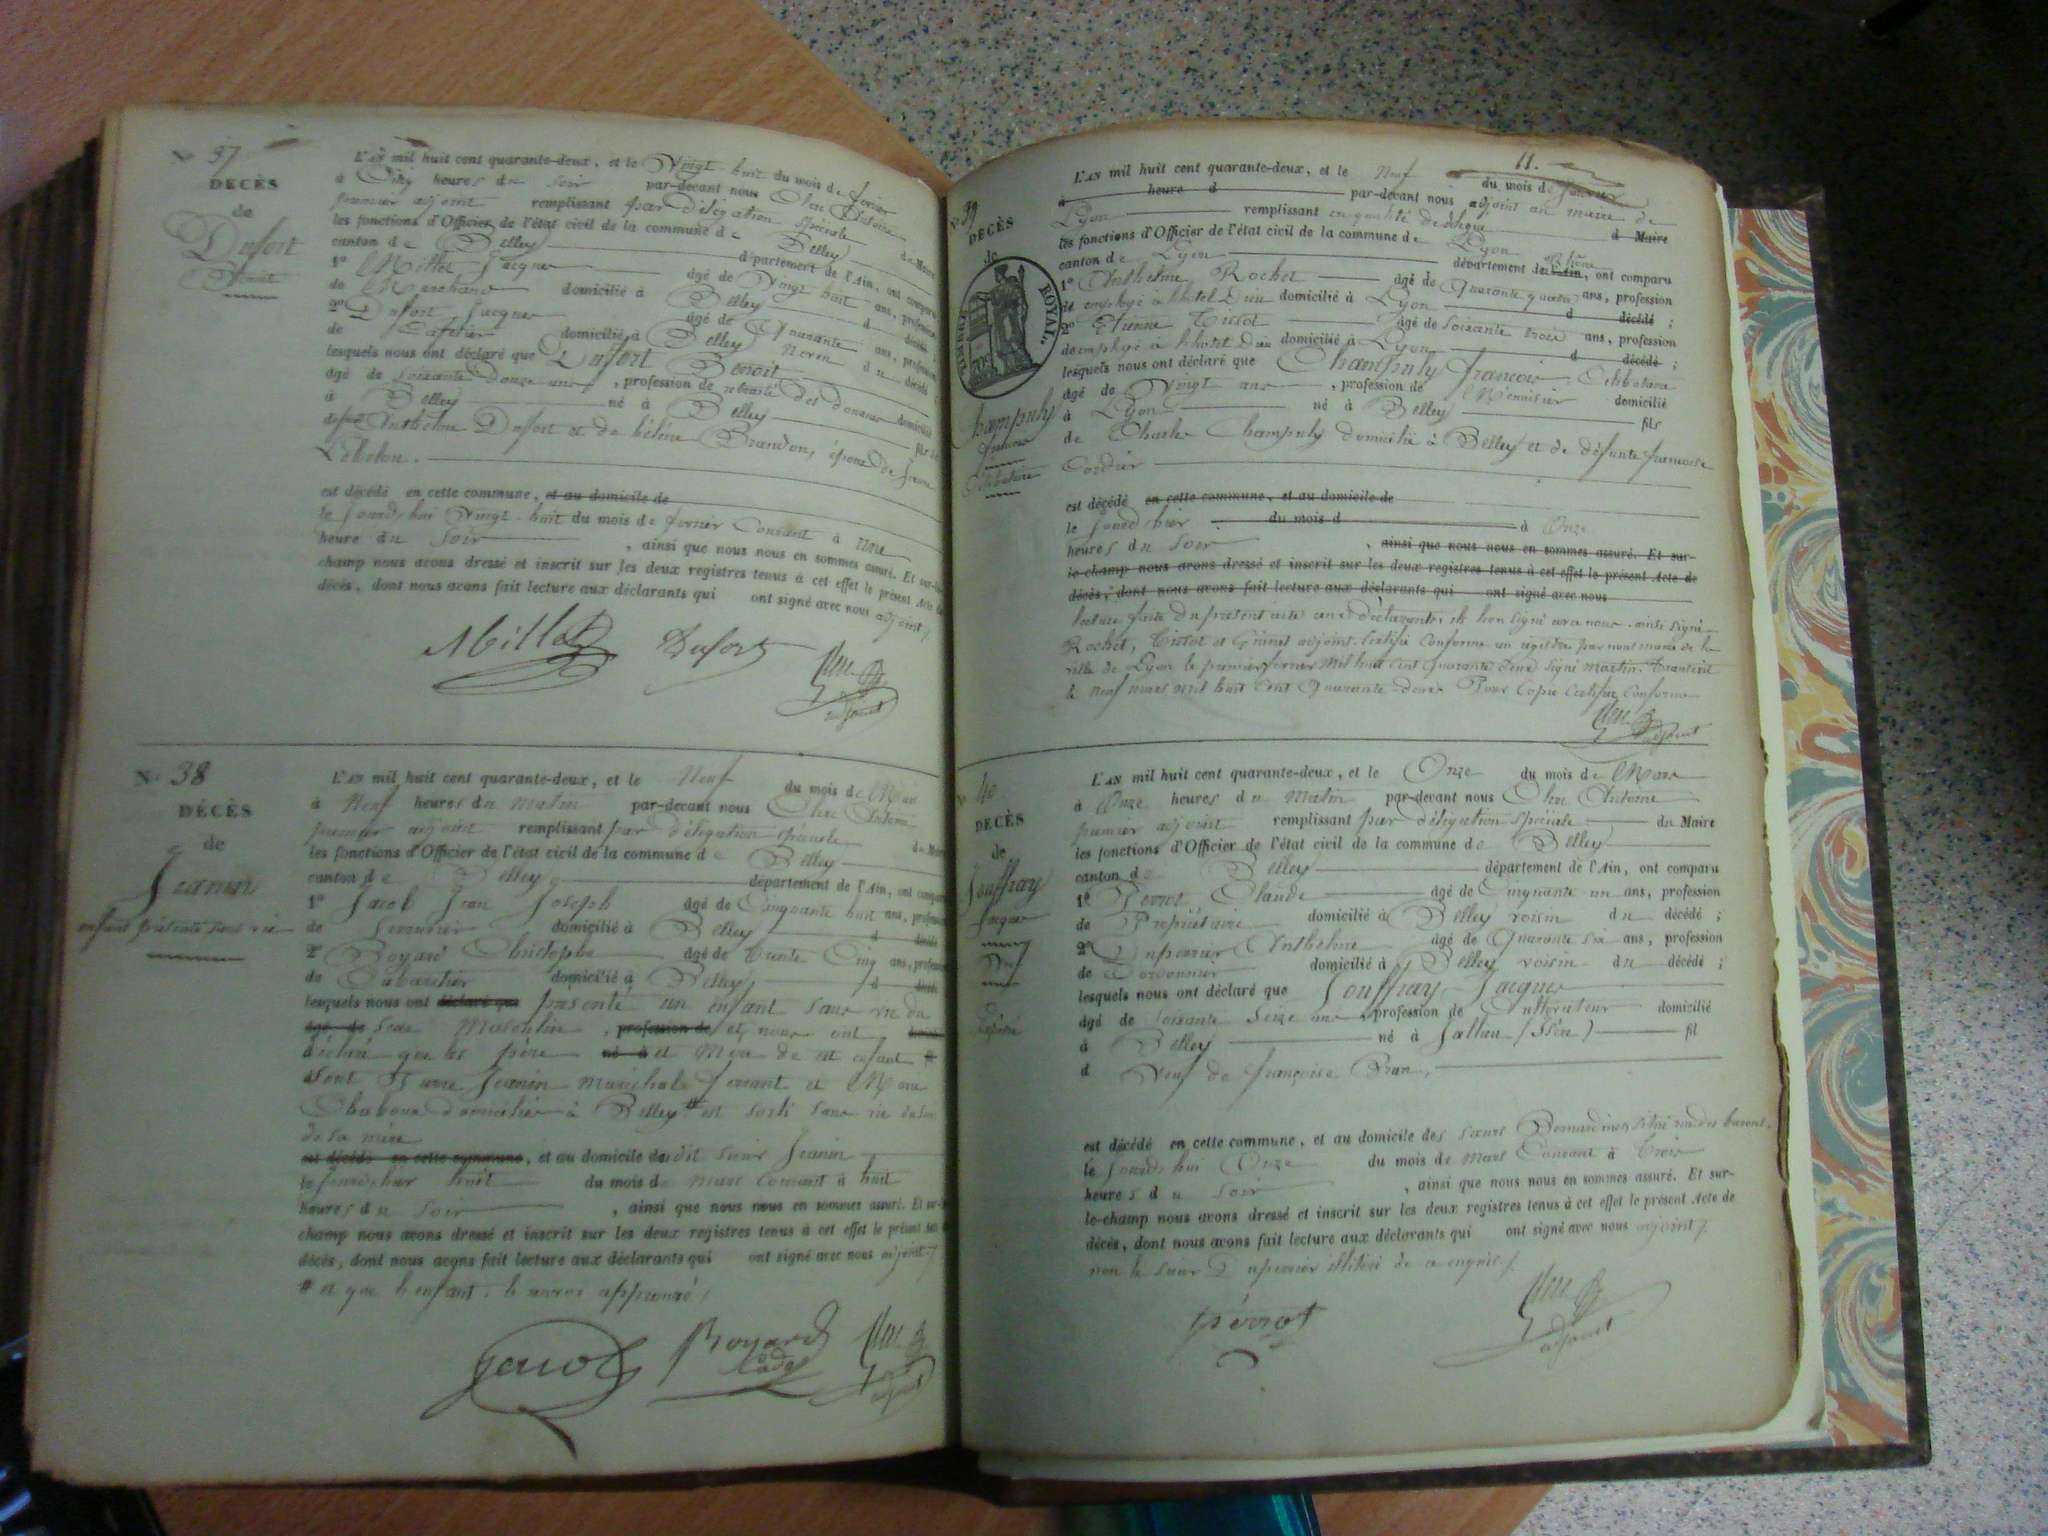 N° 37
DECÈS
de
Dufort
Benoit
L'AN mil huit cent quarante-deux, et le Vingt huit du mois de fevrier
à Cinq heures du soir par-devant nous Clerc Antoine
premier adjoint remplissant par délégation spéciale du Maire
les fonctions d'Officier de l'état civil de la commune de Belley
canton de Belley département de l'Ain, ont comparu
1° Millet Jacques âgé de Vingt huit ans, profession
de Marchand domicilié à Belley d décédé ;
2° Dufort Jacques âgé de Quarante ans, profession
de Cafetier domicilié à Belley Neveu du décédé
lesquels nous ont déclaré que Dufort Benoit
âgé de soixante douze ans, profession de retraité des douanes domicilié
à Belley né à Belley fils de
Anthelme Dufort et de Brandon, époux de
est décédé en cette commune, et au domicile de
le jourd'hui Vingt-huit du mois de fevrier Courant à une
heure du soir , ainsi que nous nous en sommes assuré. Et sur-le-
champ nous avons dressé et inscrit sur les deux registres tenus à cet effet le présent Acte de
décès, dont nous avons fait lecture aux déclarants qui ont signé avec nous adjoint
Millet Dufort
adjoint
N° 38
DÉCÈS
de
Jeanin
enfant présenté sans vie
L'AN mil huit cent quarante-deux, et le Neuf du mois de Mars
à Neuf heures du Matin par-devant nous Clerc Antoine
premier adjoint remplissant par délégation spéciale du Maire
les fonctions d'Officier de l'état civil de la commune de Belley
canton de Belley département de l'Ain, ont comparu
1° Jacob Jean Joseph âgé de Cinquante huit ans, profession
de Serrurier domicilié à Belley d décédé
2° Boyard Christophe âgé de trente Cinq ans, profession
de Cabaretier domicilié à Belley d décédé
lesquels nous ont déclaré que présenté un enfant sans vie du
âgé de sexe Masculin, profession de et nous ont
déclaré que les père né à et Mère de cet enfant
sont Pierre Jeanin Maréchal ferrant et Marie
domiciliés à Belley # est sorti sans vie du sein
de sa mère
est décédé en cette commune, et au domicile dudit sieur Jeanin
le jourd'hier huit du mois de mars Courant à huit
heures du soir , ainsi que nous nous en sommes assuré. Et sur-le-
champ nous avons dressé et inscrit sur les deux registres tenus à cet effet le présent Acte de
décès, dont nous avons fait lecture aux déclarants qui ont signé avec nous adjoint
# et que l'enfant, le renvoi approuvé
Jacob Boyard cadet
adjoint
11.
N° 39
DECÈS
de
TIMBRE ROYAL
70c
Champuly
françois
Célibataire
L'AN mil huit cent quarante-deux, et le Neuf du mois de Janvier
à heure d par-devant nous adjoint au maire de
Lyon remplissant en qualité de délégué d Maire
les fonctions d'Officier de l'état civil de la commune de Lyon
canton de Lyon département de l'Ain, Rhône ont comparu
1° Anthelme Rochet âgé de Quarante quatre ans, profession
de employé à l'hôtel Dieu domicilié à Lyon d décédé ;
2° Etienne Tissot âgé de soixante trois ans, profession
de employé à l'hôtel Dieu domicilié à Lyon d décédé ;
lesquels nous ont déclaré que Champuly françois Célibataire
âgé de Vingt ans , profession de Menuisier domicilié
à Lyon né à Belley fils
de Charles Champuly domicilié à Belley et de défunte françoise
Cordier
est décédé en cette commune, et au domicile de
le jourd'hier du mois d à Onze
heures du soir , ainsi que nous nous en sommes assuré. Et sur-
le-champ nous avons dressé et inscrit sur les deux registres tenus à cet effet le présent Acte de
décès, dont nous avons fait lecture aux déclarants qui ont signé avec nous
lecture faite du présent acte aux déclarants, ils l'ont signé avec nous. ainsi signé
Rochet, Tissot et adjoint. Certifié Conforme au registre par nous maire de la
ville de Lyon le premier fevrier Mil huit Cent Quarante Deux Signé Martin. Transcrit
le neuf mars mil huit Cent Quarante deux Pour Copie Certifiée Conforme
adjoint
40
DECÈS
de
Jouffray
Jacques
Veuf
L'AN mil huit cent quarante-deux, et le Onze du mois de Mars
à Onze heures du Matin par-devant nous Clerc Antoine
premier adjoint remplissant par délégation spéciale du Maire
les fonctions d'Officier de l'état civil de la commune de Belley
canton de Belley département de l'Ain, ont comparu
1° Perrot Claude âgé de Cinquante un ans, profession
de Propriétaire domicilié à Belley voisin du décédé ;
2° Anthelme âgé de Quarante six ans, profession
de Cordonnier domicilié à Belley voisin du décédé ;
lesquels nous ont déclaré que Jouffray Jacques
âgé de soixante Seize ans profession de Cultivateur domicilié
à Belley né à (Isère) fil
d Veuf de françoise
est décédé en cette commune, et au domicile des soeurs Bernardines
le jourd'hui Onze du mois de Mars Courant à Trois
heures du soir , ainsi que nous nous en sommes assuré. Et sur-
le-champ nous avons dressé et inscrit sur les deux registres tenus à cet effet le présent Acte de
décès, dont nous avons fait lecture aux déclarants qui ont signé avec nous adjoint
non le sieur illitéré de ce enquis
perrot
adjoint